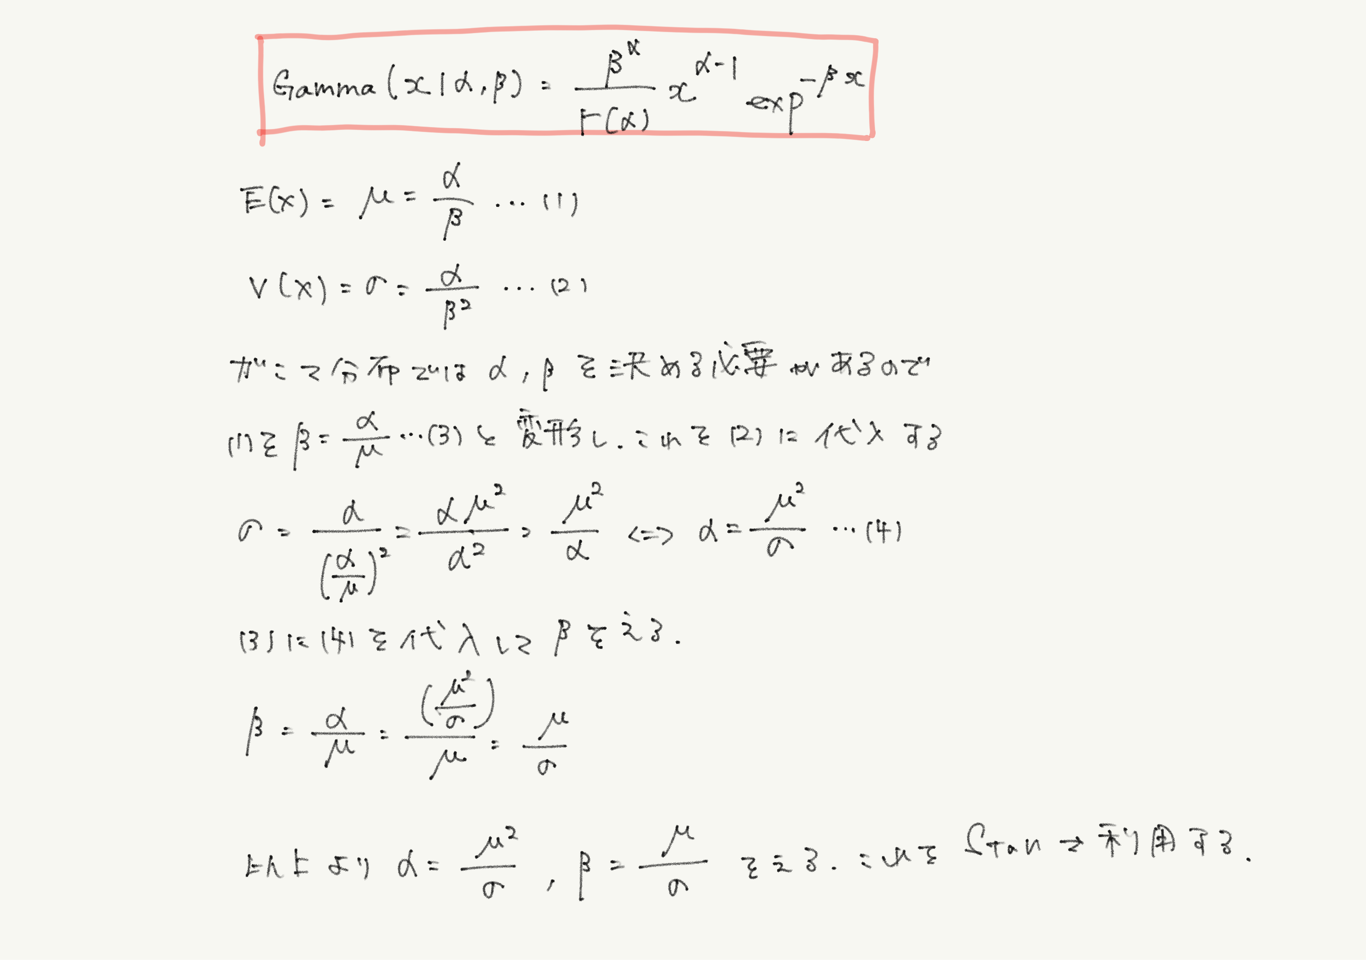 Gamma(x|α,β) = β^α/Γ(α) x^(α-1) exp^(-βx)
E(x) = μ = α/β … (1)
V(x) = σ = α/β² … (2)
ガンマ分布では α, β を決める必要があるので
(1)を β = α/μ …(3) と変形し、これを (2) に代入する
σ = α/(α/μ)² = αμ²/α² = μ²/α <=> α = μ²/σ …(4)
(3)に(4)を代入して β をえる.
β = α/μ = (μ²/σ)/μ = μ/σ
以上より α = μ²/σ , β = μ/σ をえる. これを Stan で利用する.